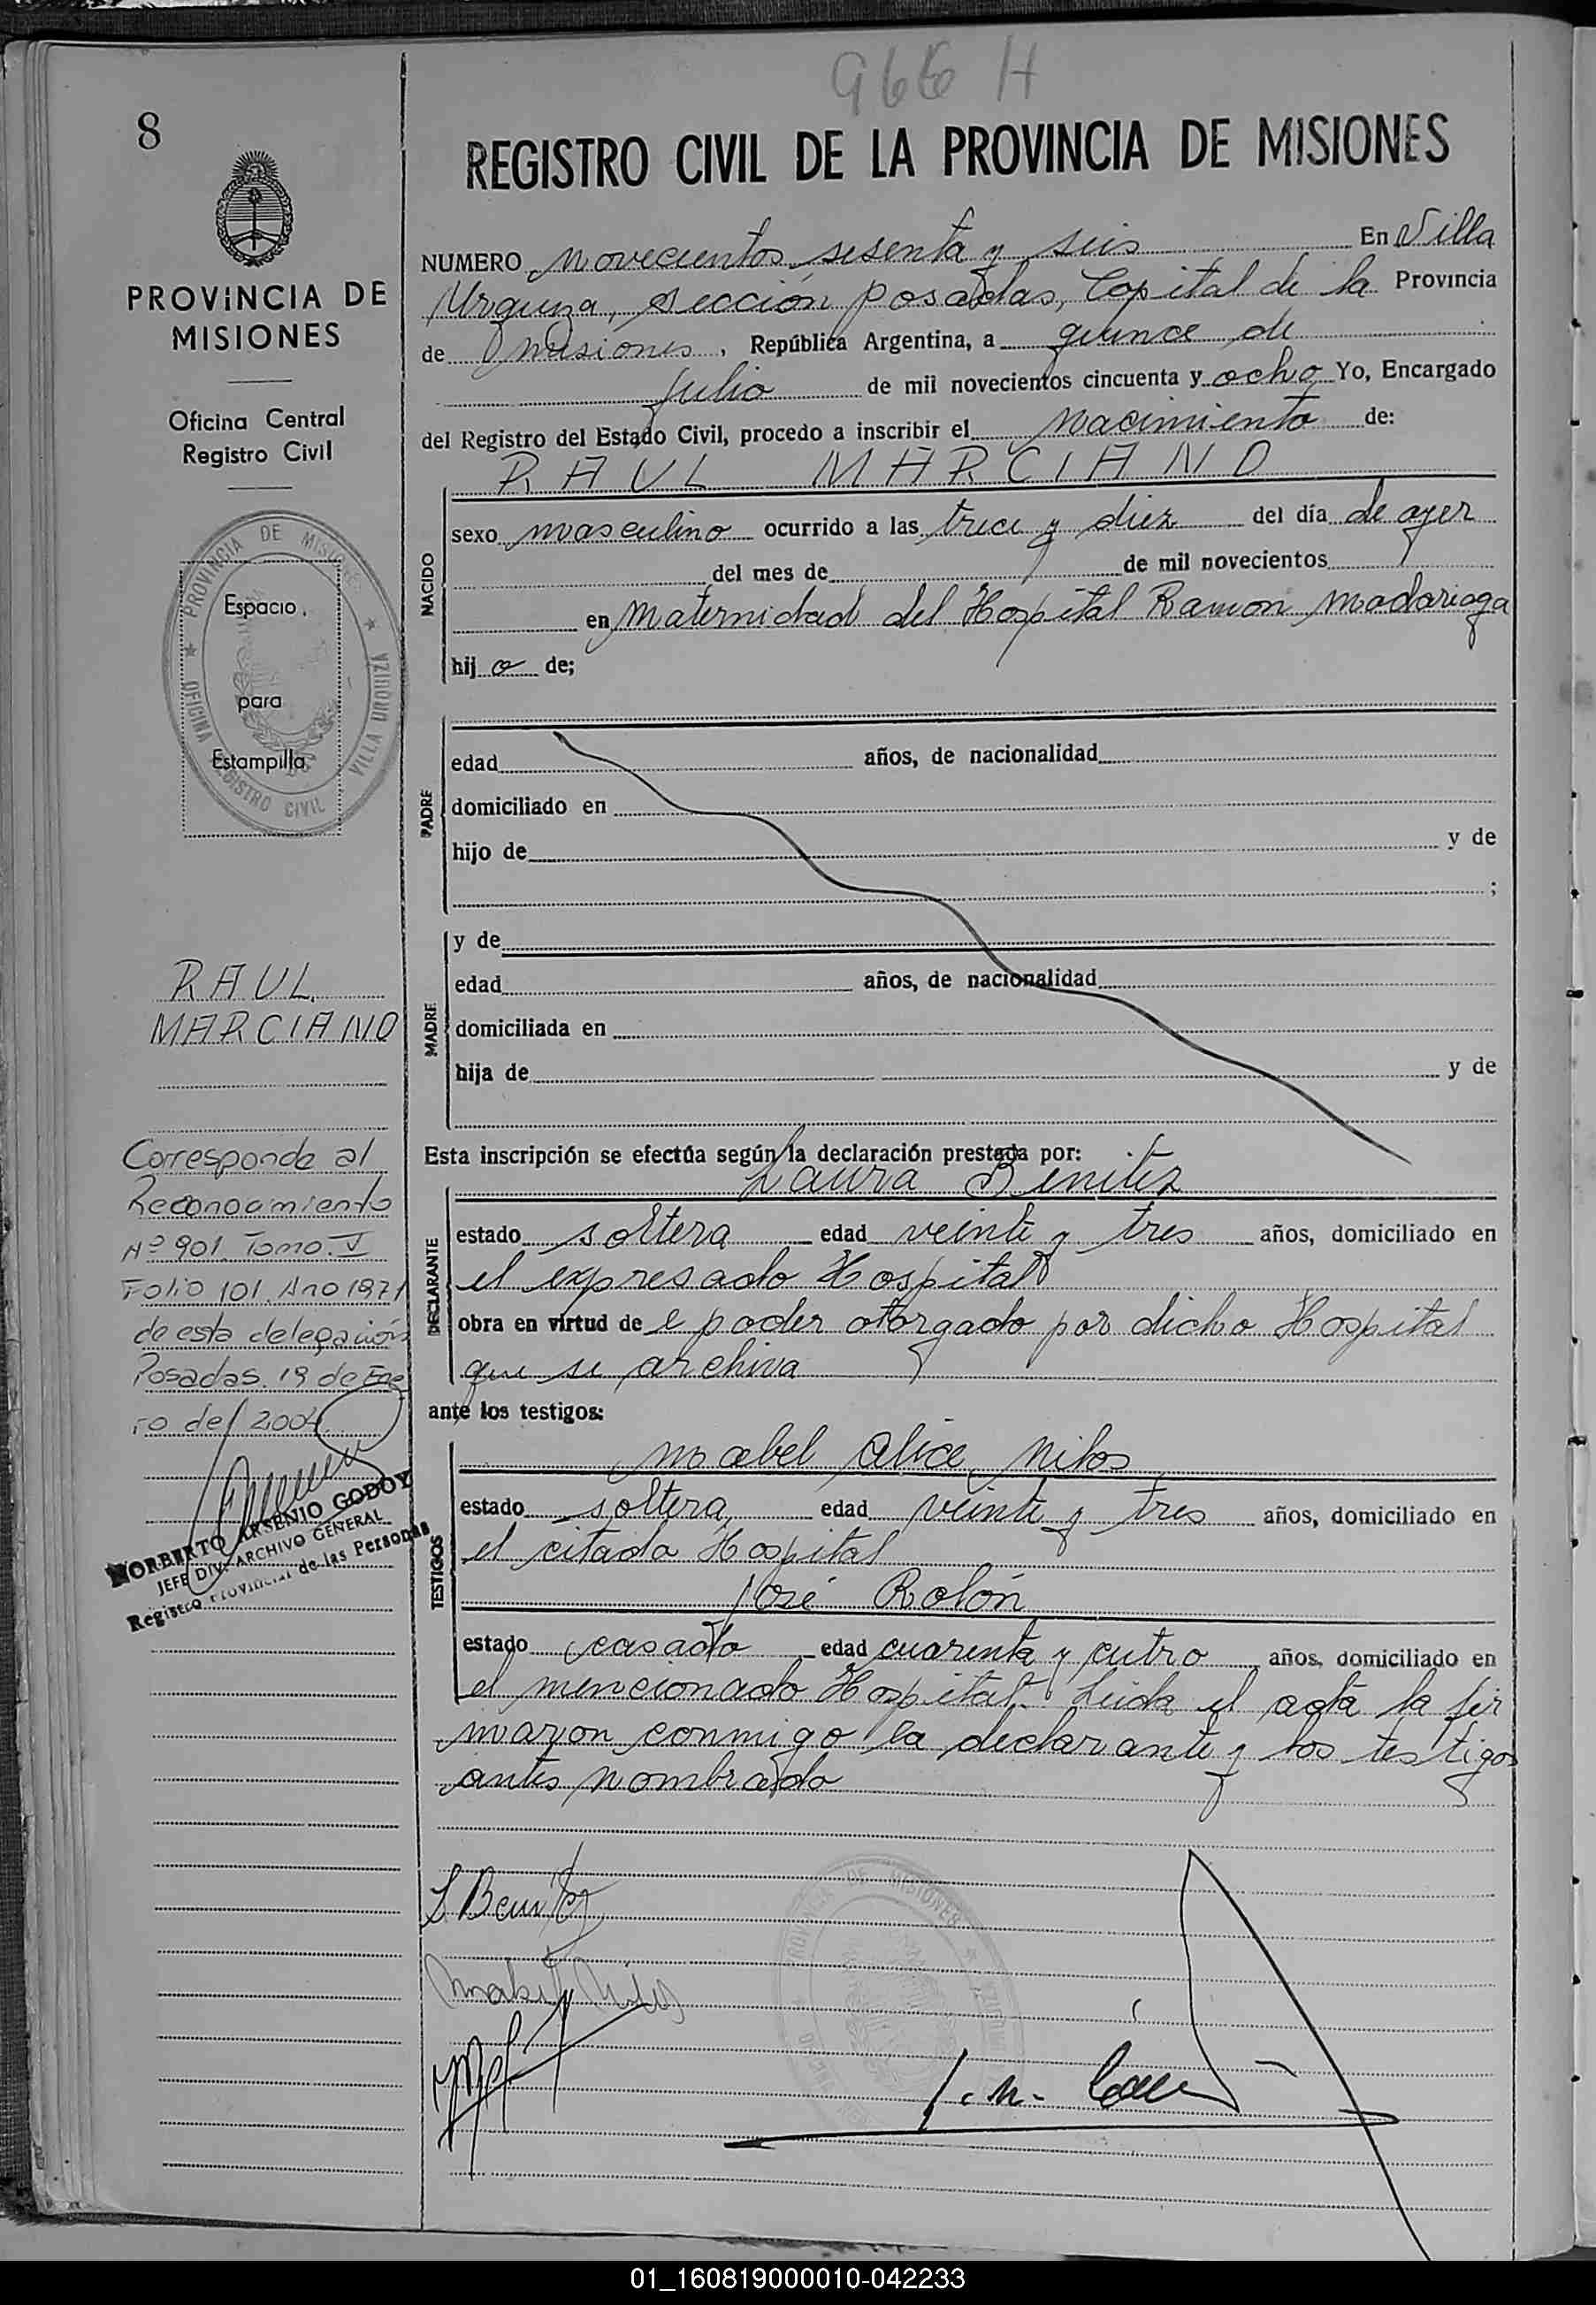 966 H
8
REGISTRO CIVIL DE LA PROVINCIA DE MISIONES
PROVINCIA DE
MISIONES
Oficina Central
Registro Civil
PROVINCIA DE MISIONES
OFICINA REGISTRO CIVIL VILLA URQUIZA
Espacio
para
Estampilla
RAUL
MARCIANO
Corresponde al
Reconocimiento
Nº 901 Tomo V
Folio 101. Año 1971
de esta delegación
Posadas. 19 de Ene
ro del 2004
NORBERTO ARSENIO GODOY
JEFE DIV. ARCHIVO GENERAL
Registro Provincial de las Personas
NUMERO novecientos sesenta y seis En Villa
Urquiza, sección posadas, Capital de la Provincia
de misiones, República Argentina, a quince de
julio de mil novecientos cincuenta y ocho Yo, Encargado
del Registro del Estado Civil, procedo a inscribir el nacimiento de:
RAUL MARCIANO
NACIDO
sexo masculino ocurrido a las trece y diez del día de ayer
del mes de de mil novecientos
en maternidad del Hospital Ramon madariaga
hij o de;
PADRE
edad años, de nacionalidad
domiciliado en
hijo de y de
;
MADRE
y de
edad años, de nacionalidad
domiciliada en
hija de y de
Esta inscripción se efectúa según la declaración prestada por:
Laura Benitez
DECLARANTE
estado soltera edad veinte y tres años, domiciliado en
el expresado Hospital
obra en virtud de e poder otorgado por dicho Hospital
que se archiva
ante los testigos:
mabel Alice
TESTIGOS
estado soltera, edad veinte y tres años, domiciliado en
el citado Hospital
José Rolón
estado casado edad cuarenta y cutro años, domiciliado en
el mencionado Hospital. Leida el acta la fir
maron conmigo la declarante y los testigos
antes nombrado
L Benitez
PROVINCIA DE MISIONES
01_160819000010-042233